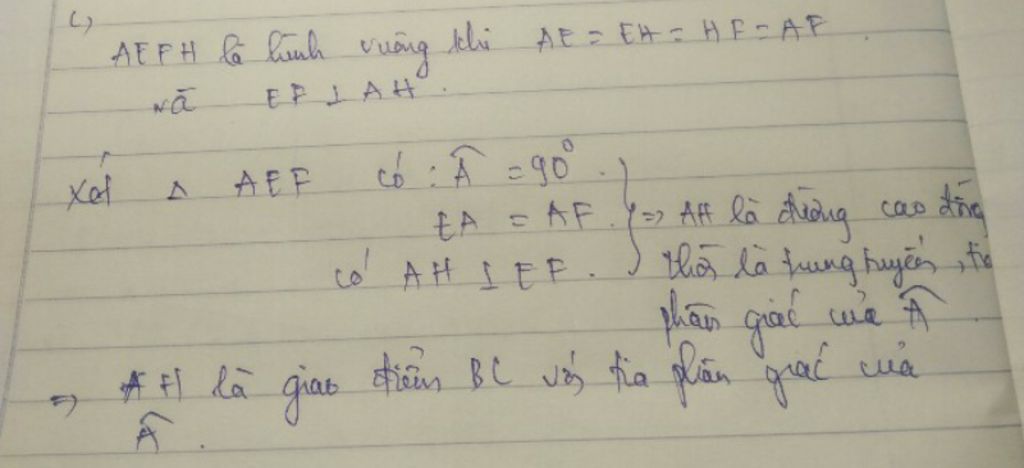 c,
AEFH là hình vuông khi AE = EH = HF = AF
và EF ⊥ AH.
Xét Δ AEF có : Â = 90°.
EA = AF. } => AH là đường cao đồng
có AH ⊥ EF. thời là trung tuyến, tia
phân giác của Â.
=> AH là giao điểm BC với tia phân giác của
Â.